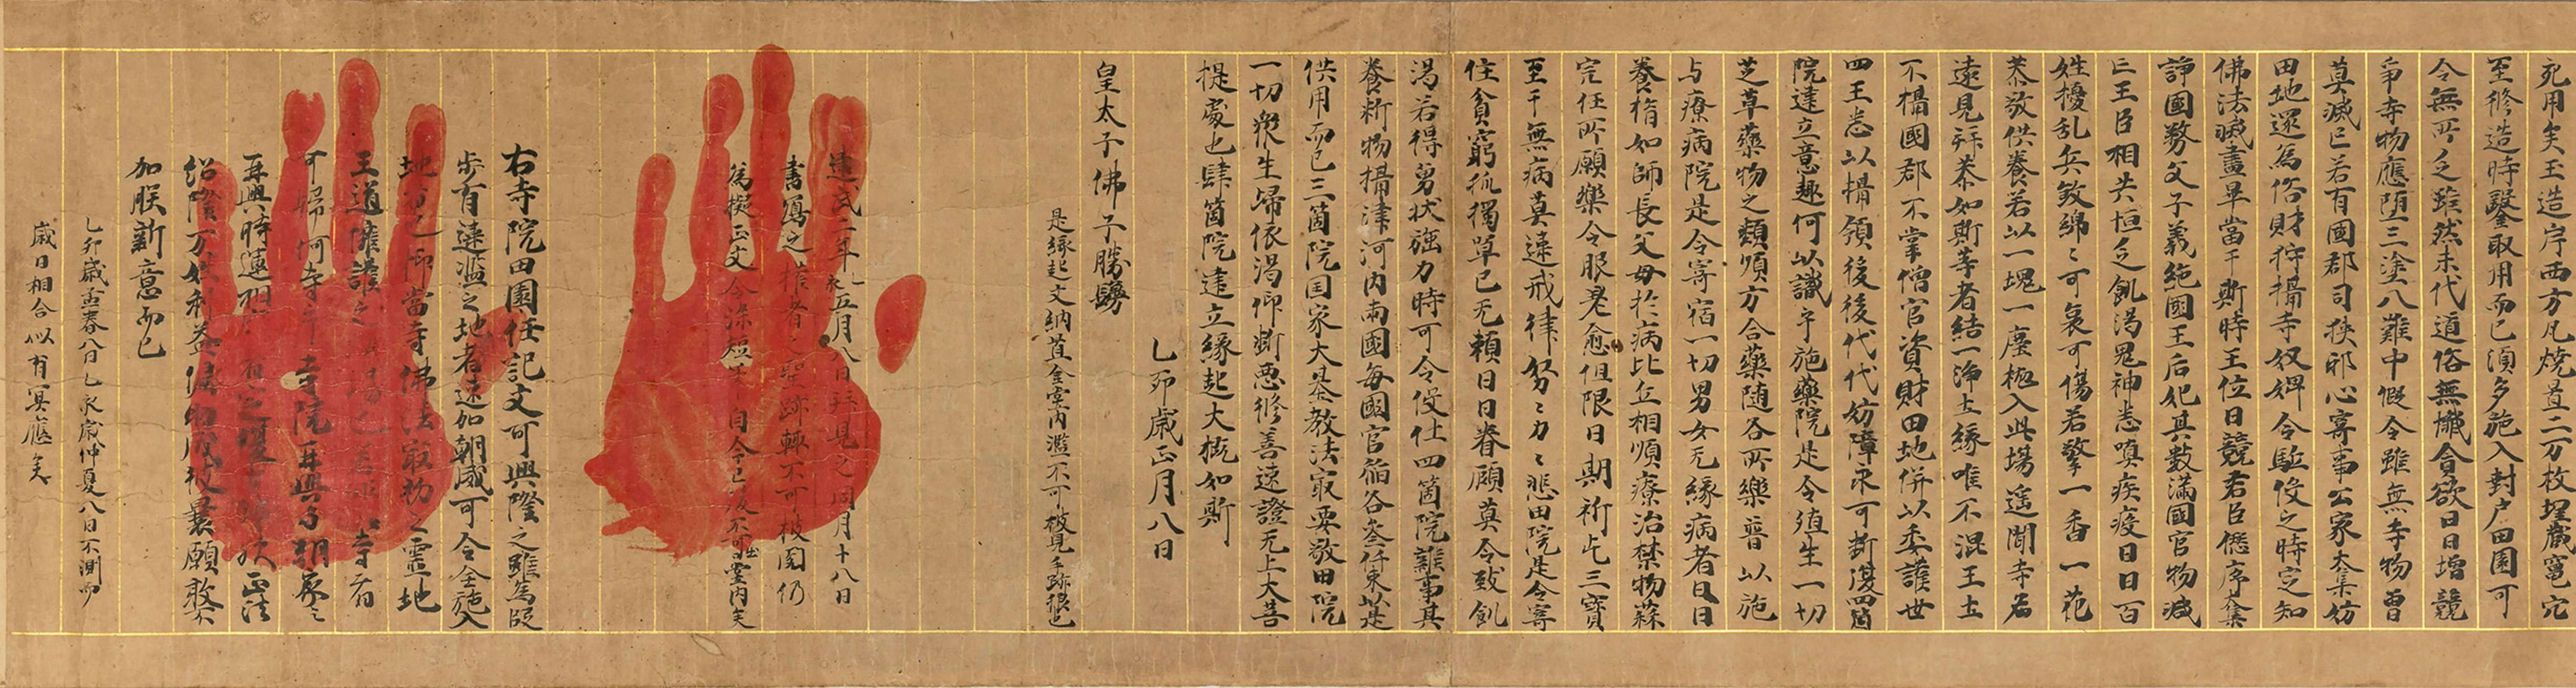 死用矣玉造岸西方瓦燒置二万枚埋蔵窟穴
至修造時鑿取用而已湏多施入封戸田園可
令無所乏雖然末代道俗無懺會欲日日增競
爭寺物應堕三塗八難中假令雖無寺物曽
莫滅已若有國郡司挾邪心寄事公家太集妨
田地還為俗財狩掃寺奴婢令駈伇之時定知
佛法滅盡畢當于斯時王位日競君臣僁序
諍國勢父子義絶國王后妃其數滿國官物減
亡王臣相共恒乏飢渴鬼神恚嗔疾疫日日百
姓擾乱兵敓綿〻可哀可傷若擎一香一花
恭敬供養若以一塊一塵抛入此場遥聞寺名
遠見拜恭如斯等者結一浄土縁唯不混王土
不攝國郡不掌僧官資財田地併以委護世
四王悉以攝領後後代代妨障永可断湲四箇
院建立意趣何以識乎施藥院是令殖生一切
芝草藥物之類順方合藥随各所樂普以施
与療病院是令寄宿一切男女无縁病者日日
養育如師長父母於病比丘相順療治禁物蒜
宍任所願樂令服差愈但限日期祈乞三寶
至于無病莫違戒律努〻力〻悲田院是令寄
住貧窮孤獨單己无頼日日眷顧莫令致飢
渴若得勇状強力時可令伇仕四箇院雜事其
養断物攝津河内兩國每國官稲各參仟束以是
供用而已三箇院国家大基教法冣要敬田院
一切衆生歸依渴仰断惡修善速證无上大菩
提處也肆箇院建立縁起大概如斯
乙卯歳正月八日
皇太子佛子勝鬘
是縁起文納置金堂内濫不可披見手跡狼也
建武二年乙亥五月八日拜見之同月十八日
書寫之〻者聖跡輙不可披閲仍
為擬正文令染短毫自今已後不可出堂内矣
右寺院田園任記文可興隆之雖為段
步有違濫之地者速加朝威可令全施入
地者也仰當寺佛法冣初之靈地
王道擁護之場也
可歸何寺乎寺院再興
再興時運
紹隆万姓利益
加朕新意而已
乙卯歳孟春八日乙亥歳仲夏八日不測而
歳日相合以有冥應矣